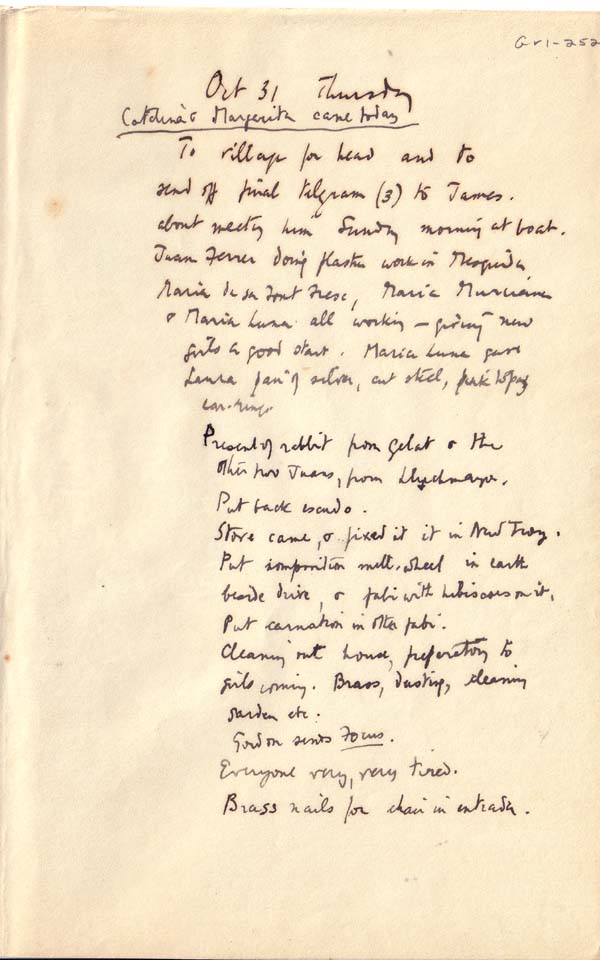 Gr1-252
Oct 31 Thursday
Catalina & Margerita came today
To village for head and to
send off final telegram (3) to James.
about meeting him Sunday morning at boat.
Juan Ferrer doing plaster work in Mesquida,
Maria de sa Font Fresc, Maria Murciana
& Maria Luna all working – giving new
girls a good start. Maria Luna gave
Laura pair of silver, cut steel, pink topaz
ear-rings
Present of rabbit from Gelat & the
other two Juans, from Lluchmayor.
Put back escudo.
Stove came, & fixed it it in New Troy.
Put composition mill-wheel in earth
beside drive, & fabi with hibiscus on it.
Put carnation in other fabi.
Cleaning out house, preparatory to
girls coming. Brass, dusting, cleaning
garden etc.
Gordon sends Focus.
Everyone very, very tired.
Brass nails for chair in entrada.